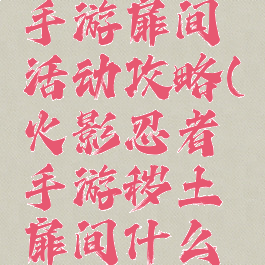 手游扉间
活动攻略(
火影忍者
手游秽土
扉间什么